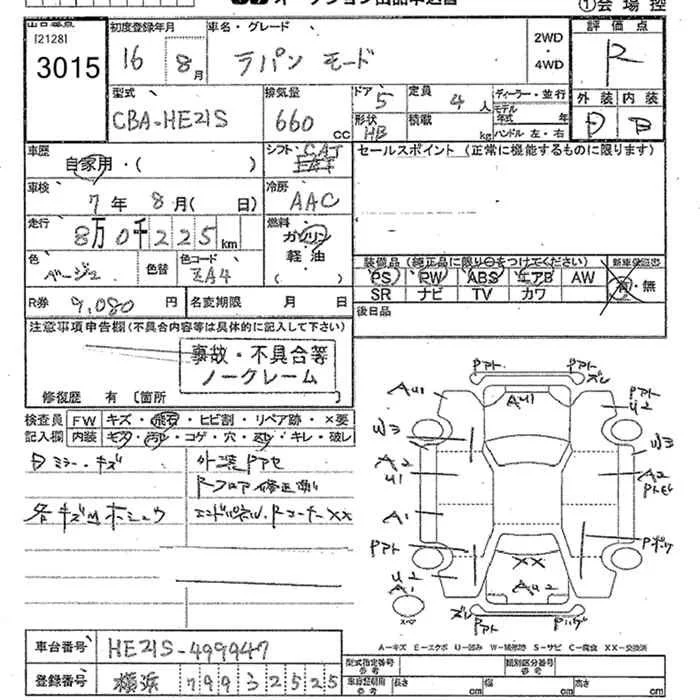 オークション出品申込書
①会場控
[2128]
3015
初度登録年月
16 8月
車名・グレード
ラパン モード
2WD
・
4WD
評価点
R
外装 内装
D B
型式
CBA-HE21S
排気量
660 cc
ドア 5
形状 HB
定員 4 人
積載 kg
ディーラー・並行
モデル年式 年
ハンドル 左・右
車歴
自家用・( )
シフト
CAT
セールスポイント (正常に機能するものに限ります)
車検
7年 8月( 日)
冷房
AAC
走行
8万0千225km
燃料
ガソリン
軽油
( )
色
ベージュ
色替
色コード
ZA4
装備品(純正品に限り○をつけてください)
新車保証書
PS PW ABS エアB AW
SR ナビ TV カワ
有・無
R券 9,080 円
名変期限 月 日
後日品
注意事項申告欄(不具合内容等は具体的に記入して下さい)
事故・不具合等
ノークレーム
修復歴 有 [箇所
検査員
記入欄
FW キズ・飛石・ヒビ割・リペア跡・×要
内装 キズ・汚レ・コゲ・穴・スレ・キレ・破レ
Dミラー・キズ
外装Pアセ
Rフロア修正済
各キズ凹ホシュウ
エンドパネル、RコーナーXX
Pアト Pアト ズレ
AU1 AU1 Pアト U2
W3 W3
A2 U1 A2 Pトビ
A1
Pアト Pボケ
U2 A XX AU2
ズレ Pアト
A-キズ E-エクボ U-凹み W-補修跡 S-サビ C-腐食 XX-交換済
車台番号 HE21S-499947
登録番号 横浜 799 32525
型式指定番号
参考
類別区分番号
参考
車庫証明用
参考
長さ cm 幅 cm 高さ cm